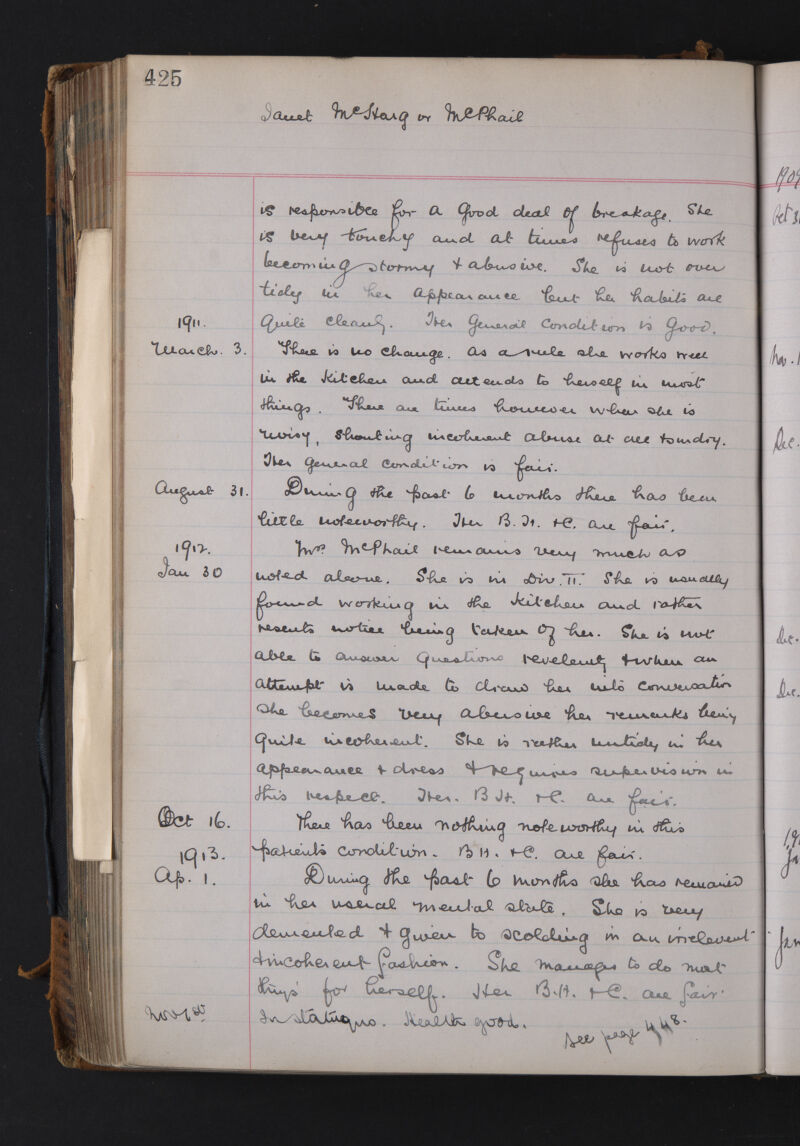 425
Janet McHarg or McPhail
is responsible for a good deal of breakage. She
is very touchy and at times refuses to work
becoming stormy & abusive. She is not over
tidy in her appearance but her habits are
1911. quite cleanly. Her General Condition is Good.
March. 3. There is no change. As a rule she works well
in the kitchen and attends to herself in most
things. There are times however when she is
noisy, shouting incoherent abuse at all & sundry.
Her general condition is fair.
August 31. During the past 6 months there has been
little noteworthy. Her B.H. & C. are fair.
1912. Mrs McPhail remains very much as
Jan 30 noted above. She is in Div. II. She is usually
found working in the kitchen and rather
resents notice being taken of her. She is not
able to answer questions revelently & when an
attempt is made to draw her into conversation
she becomes very abusive her remarks being
quite incoherent. She is rather untidy in her
appearance & dress & requires supervision in
this respect. Her. B.H. & C. are fair.
Oct 16. There has been nothing noteworthy in this
1913. patients condition. B.H. & C. are fair.
Ap. 1. During the past 6 months she has remained
in her usual mental state. She is very
demented & given to scolding in an irrelevent
& incoherent fashion. She manages to do most
things for herself. Her B.H. & C. are fair.
In statu quo. Health good.
see page 448.
1909
Oct 31
Nov. 1
Dec.
Dec.
Dec.
Jan